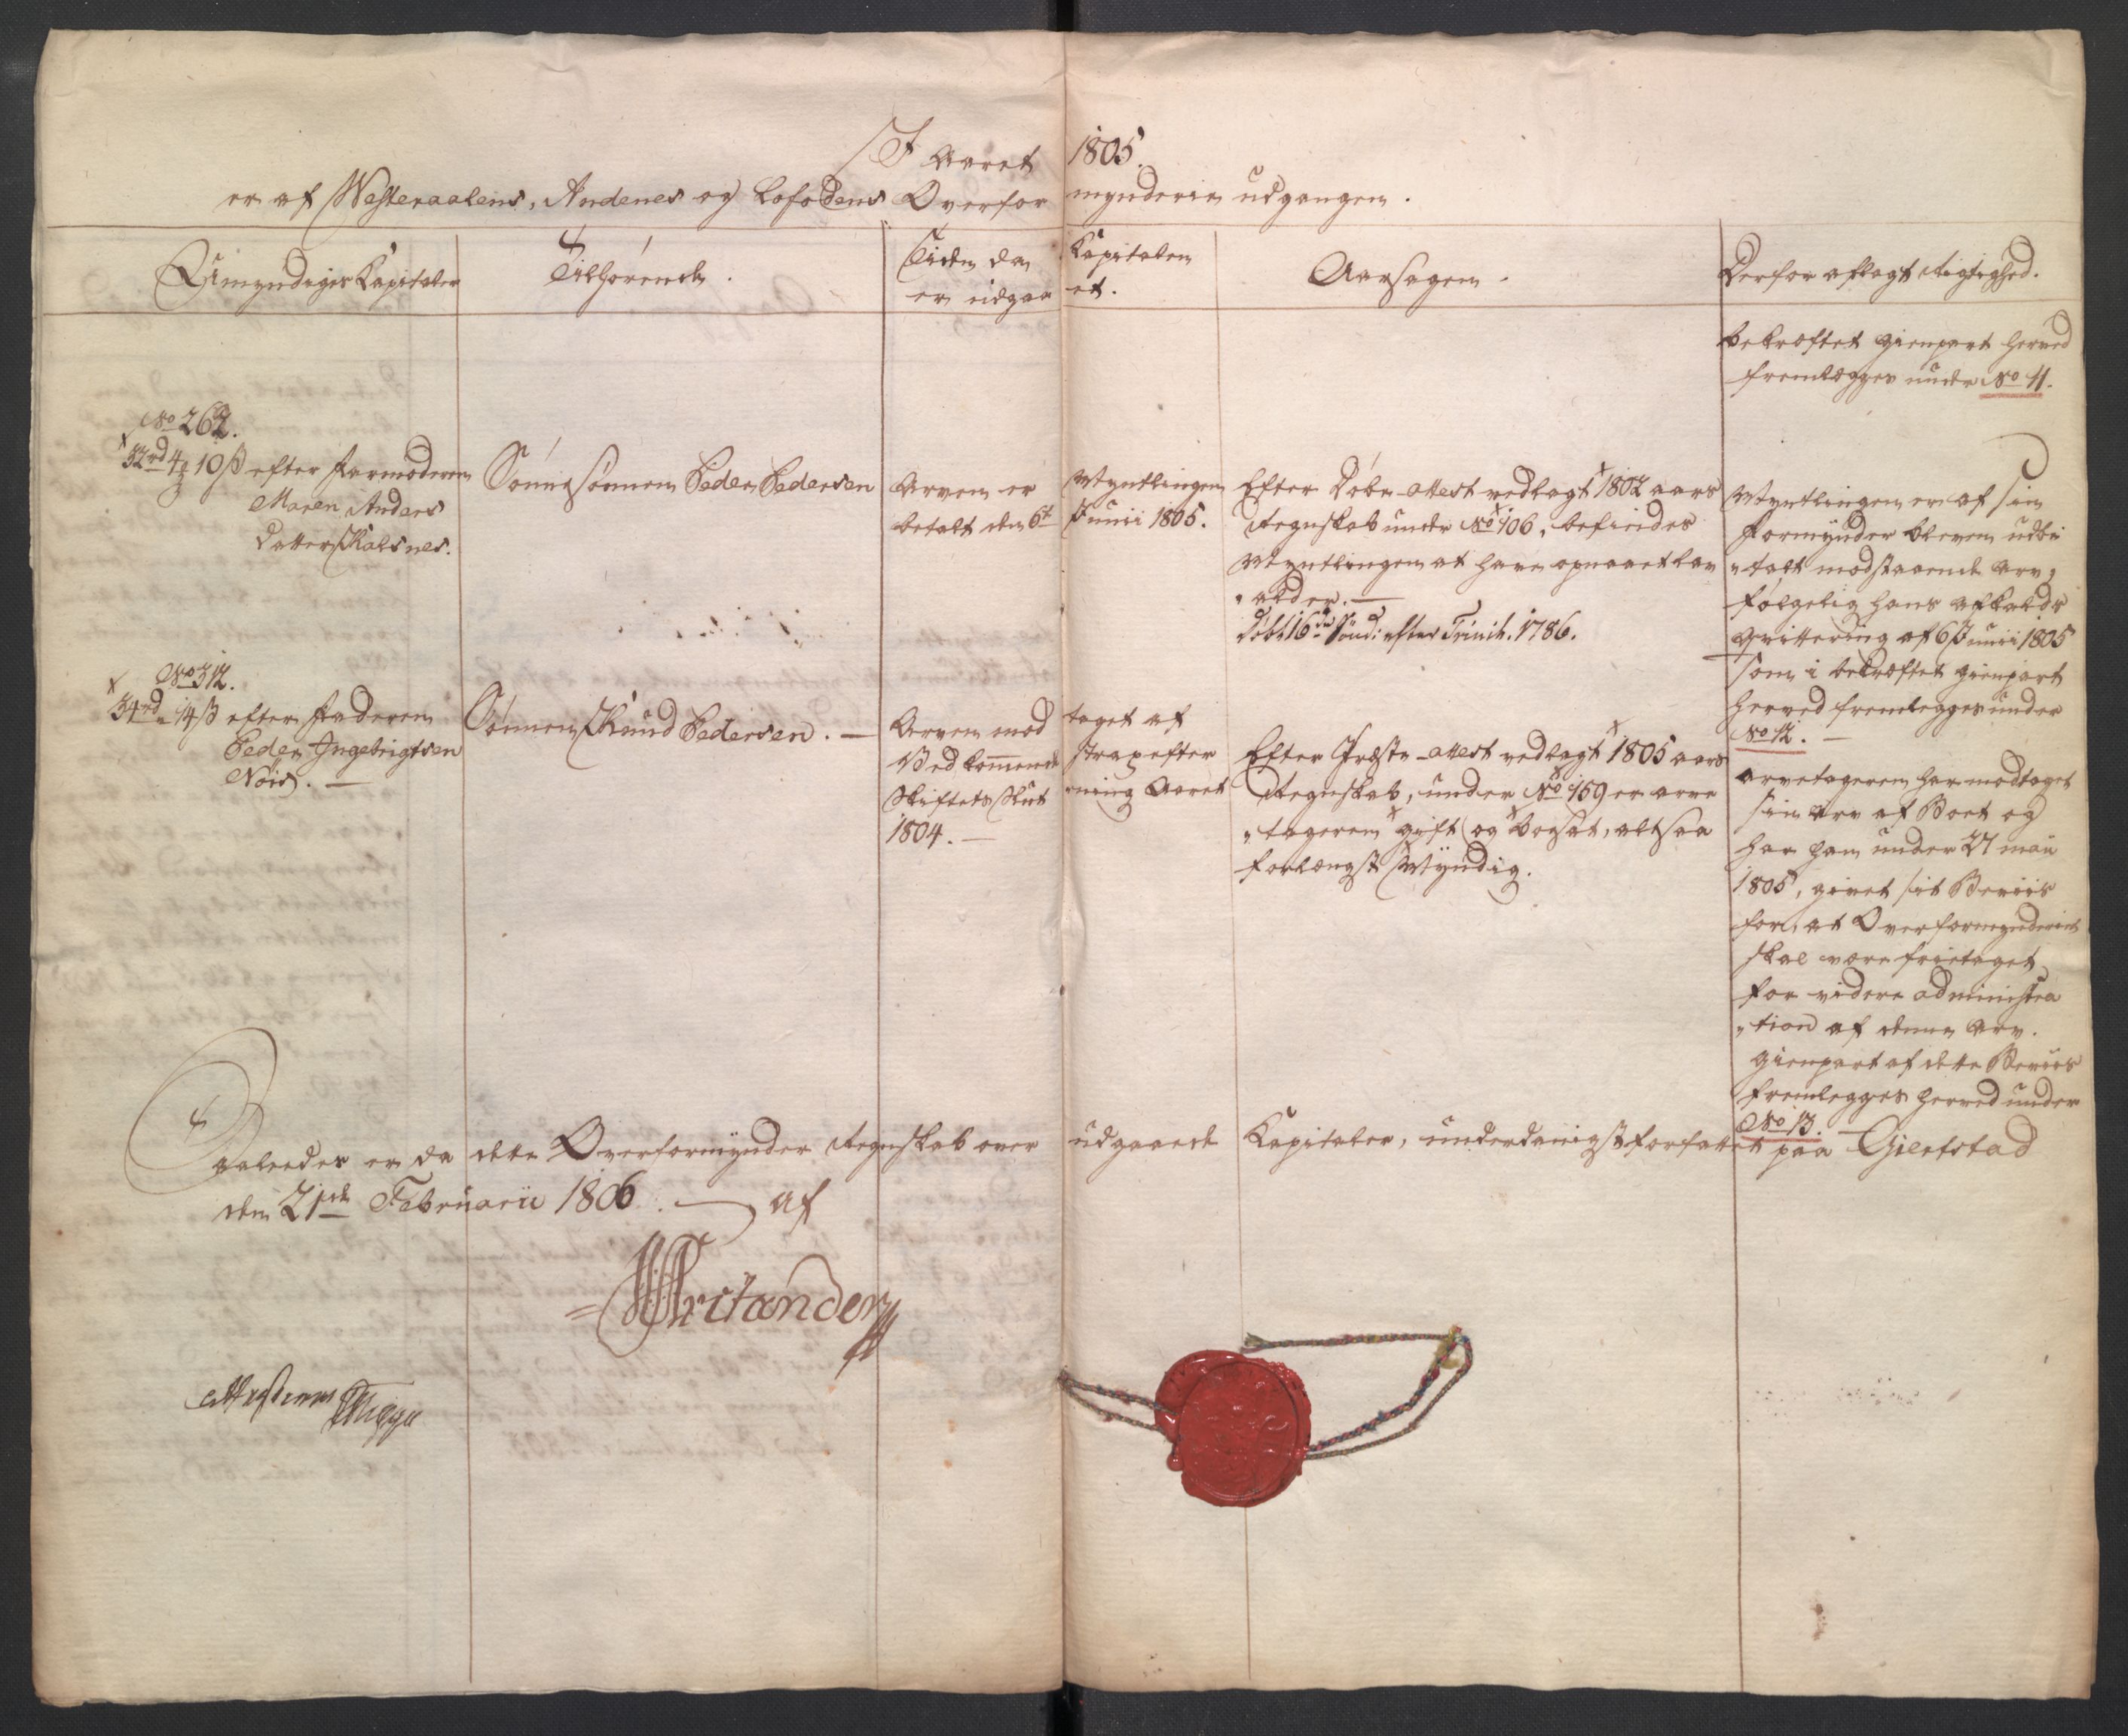 I Aaret 1805.
er af Westeraalens, Andenes og Lofodens Overformynderie udgangen.
Umyndiges Kapitaler
Tilhørende.
Tiden da Kapitalen
er udgaaet.
Aarsagen.
Derfor aflagt Rigtighed.
bekræftet gienpart herved
fremlægges under No 11.
No 262.
32rd 4 10 ß efter Farmoderen
Maren Anders
Datter Kalsnes.
Sønnesønnen Peder Pedersen
Arven er Myntlingen
betalt den 6t Junii 1805.
Efter Døbe-attest vedlagt 1802 aars
Regnskab under No 106, befindes
Myntlingen at have opnaaet lav
alder. —
Døbt 16de Sönd: efter Trinit. 1786.
Myntlingen er af sin
Formynder bleven udbe
"talt modstaaende Arv,
følgelig hans afkalds
qvittering af 6 Junii 1805
som i bekræftet gienpart
herved fremlegges under
No 12. —
No 312.
34rd " 14 ß efter Faderen
Peder Ingebrigtsen
Nøis. —
Sønnen Knud Pedersen. —
Arven mod taget af
Vedkommende strax efter
Skiftets Slut ning Aaret
1804. —
Efter Præste-attest vedlagt 1805 aars
Regnskab, under No 159 er arve
"tageren gift og bosat, altsaa
forlængst Myndig.
Arvetageren har modtaget
sin Arv af Boet og
har han under 27 maii
1805, givet sit Beviis
for, at Overformynderiet
skal være frietaget
for videre administra
"tion af denne Arv.
Gienpart af dette Beviis
fremlegges herved under
No 13. —
Saaledes er da dette Overformynder Regnskab over udgaaede Kapitaler, underdanigst forfattet paa Gierstad
den 21de Februarii 1806. — af